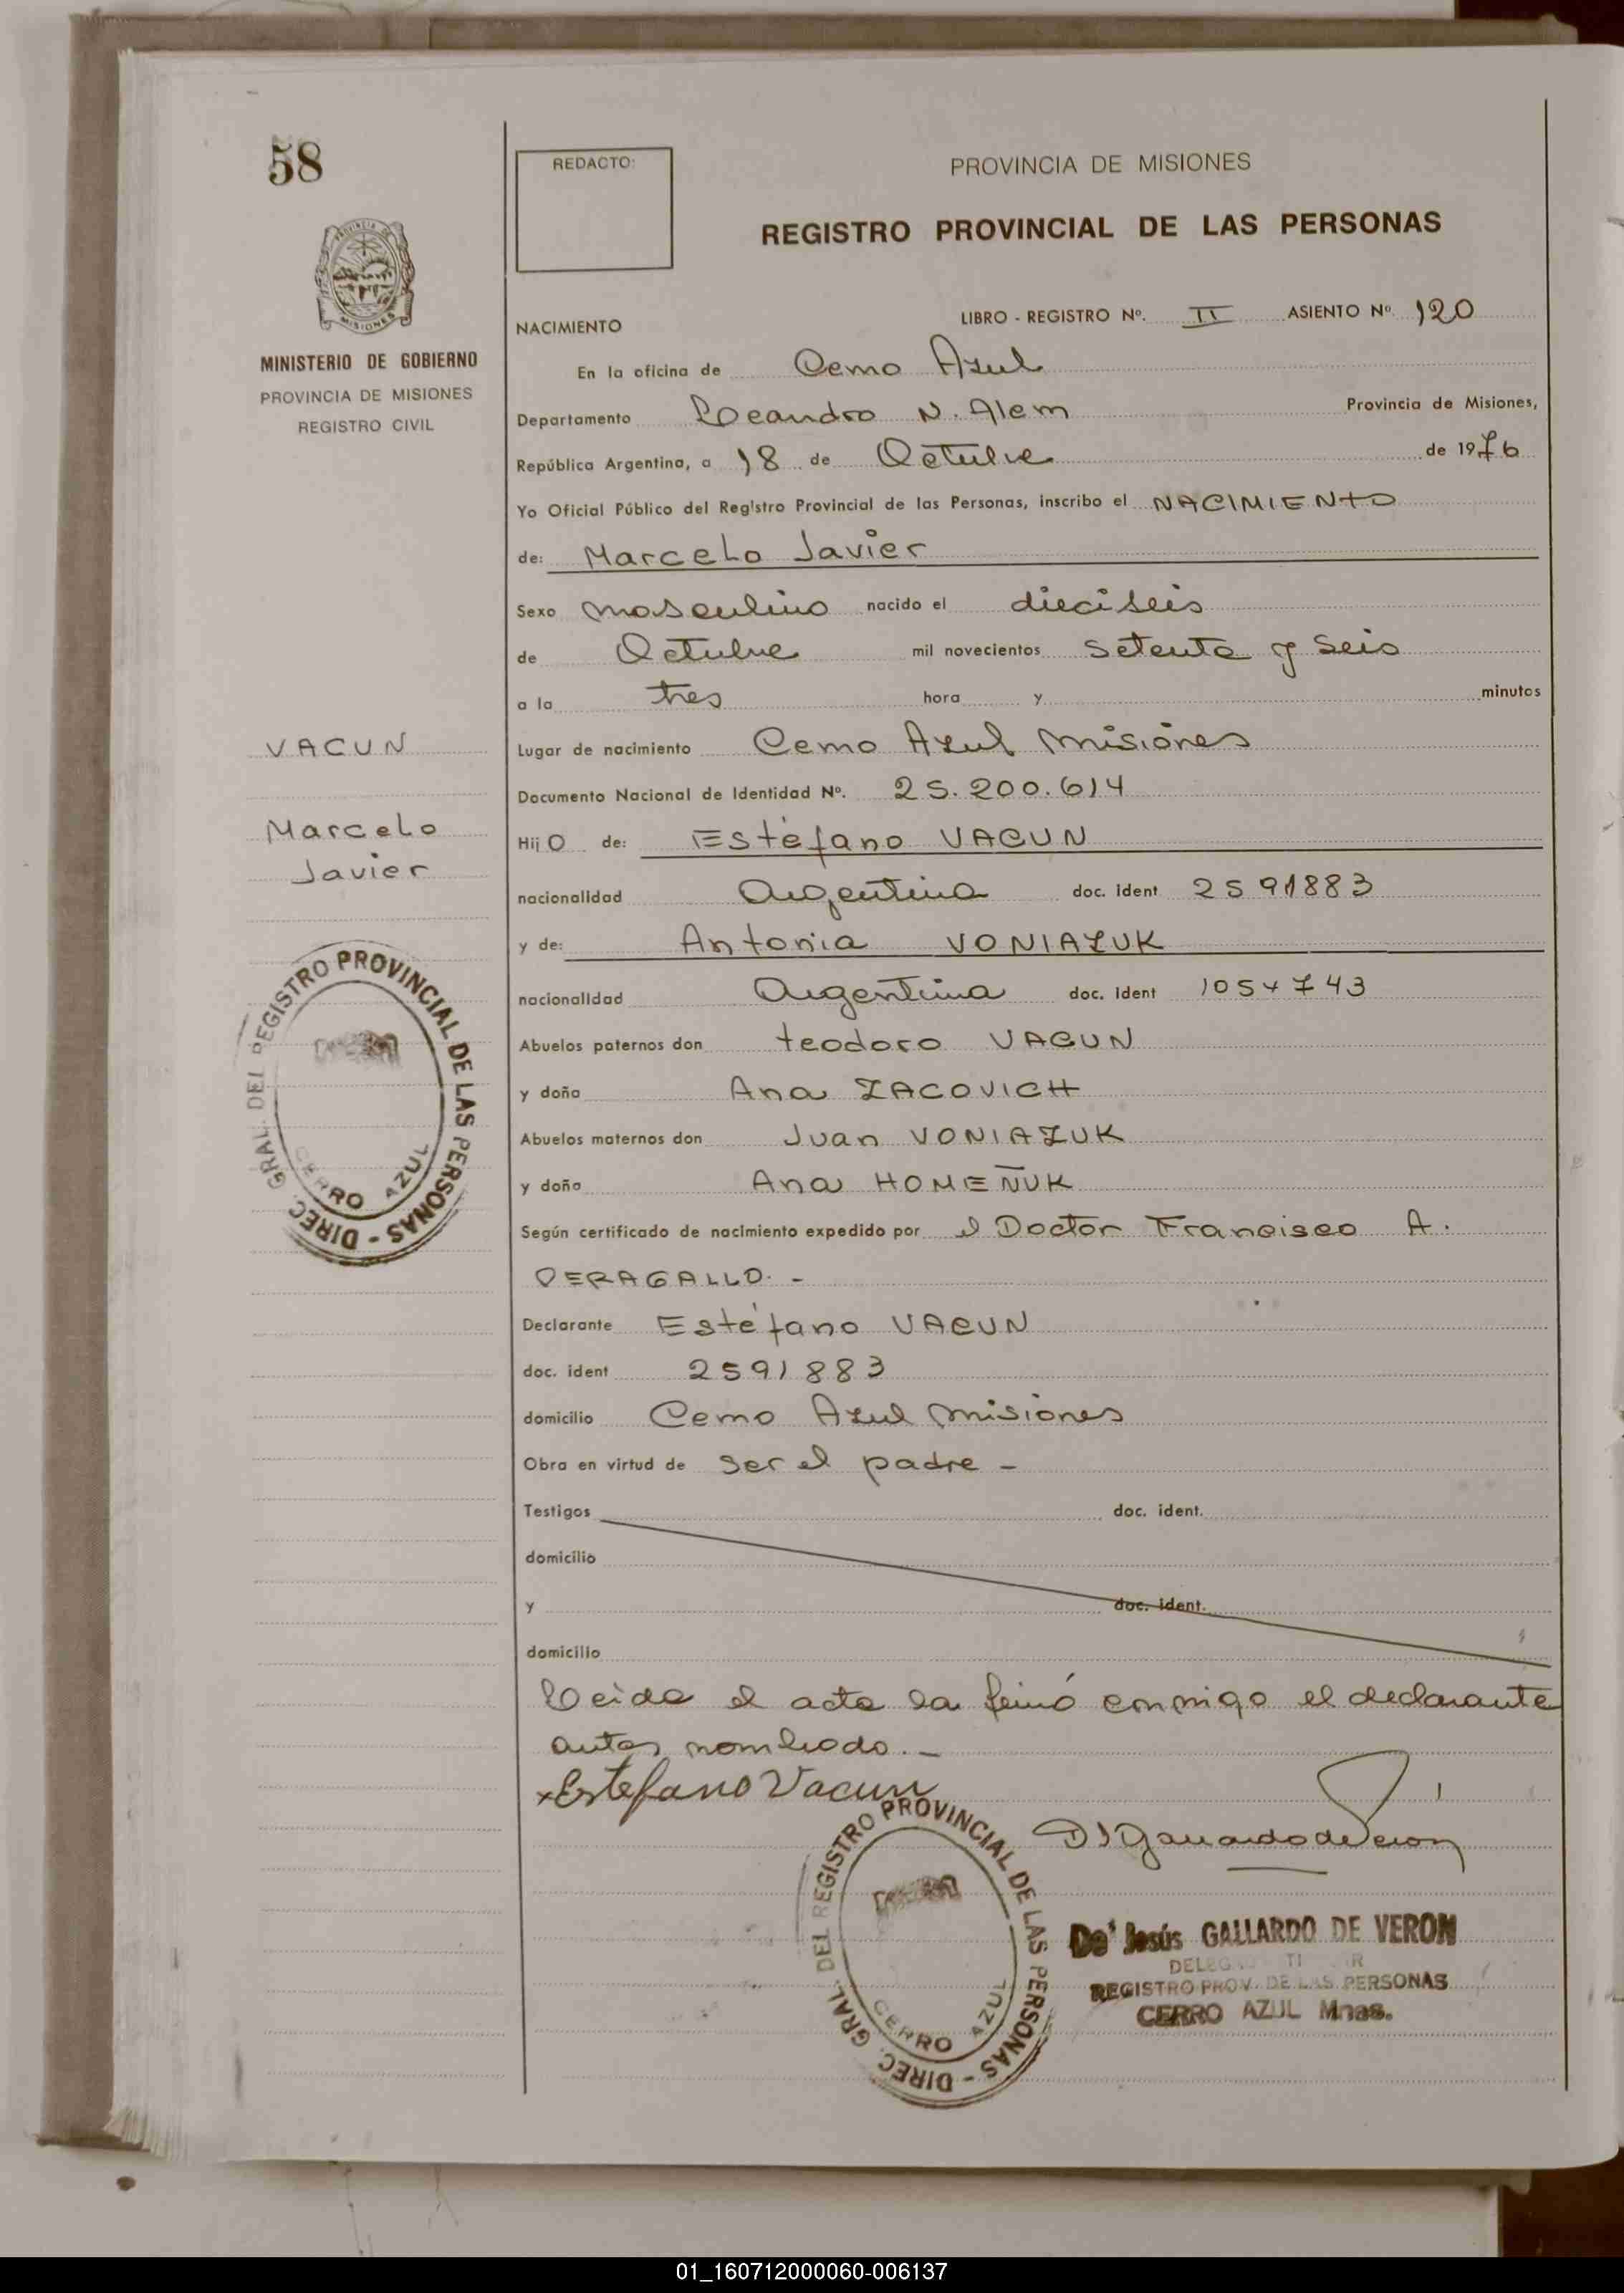 58
REDACTO:
PROVINCIA DE MISIONES
REGISTRO PROVINCIAL DE LAS PERSONAS
PROVINCIA DE
MISIONES
MINISTERIO DE GOBIERNO
PROVINCIA DE MISIONES
REGISTRO CIVIL
LIBRO - REGISTRO Nº. II ASIENTO Nº. 120
NACIMIENTO
En la oficina de Cerro Azul
Departamento Leandro N. Alem Provincia de Misiones,
República Argentina, a 18 de Octubre de 1976
Yo Oficial Público del Registro Provincial de las Personas, inscribo el NACIMIENTO
de: Marcelo Javier
Sexo masculino nacido el dieciseis
de Octubre mil novecientos setenta y seis
a la tres hora y minutos
VACUN
Marcelo
Javier
Lugar de nacimiento Cerro Azul Misiones
Documento Nacional de Identidad Nº. 25.200.614
Hijo de: Estéfano VACUN
nacionalidad Argentina doc. ident 2591883
y de: Antonia VONIAZUK
nacionalidad Argentina doc. ident 1054743
Abuelos paternos don teodoro VACUN
y doña Ana ZACOVICH
Abuelos maternos don Juan VONIAZUK
y doña Ana HOMEÑUK
Según certificado de nacimiento expedido por el Doctor Francisco A.
PERAGALLO. -
Declarante Estéfano VACUN
doc. ident 2591883
domicilio Cerro Azul Misiones
Obra en virtud de ser el padre -
Testigos doc. ident.
domicilio
y doc. ident.
domicilio
Leida el acta la firmó conmigo el declarante
antes nombrado. -
x Estefano Vacun
DJGallardo de Veron
DIREC. GRAL. DEL REGISTRO PROVINCIAL DE LAS PERSONAS -
CERRO AZUL
DIREC. GRAL. DEL REGISTRO PROVINCIAL DE LAS PERSONAS -
CERRO AZUL
De Jesús GALLARDO DE VERON
REGISTRO PROV. DE LAS PERSONAS
CERRO AZUL Mnes.
01_160712000060-006137